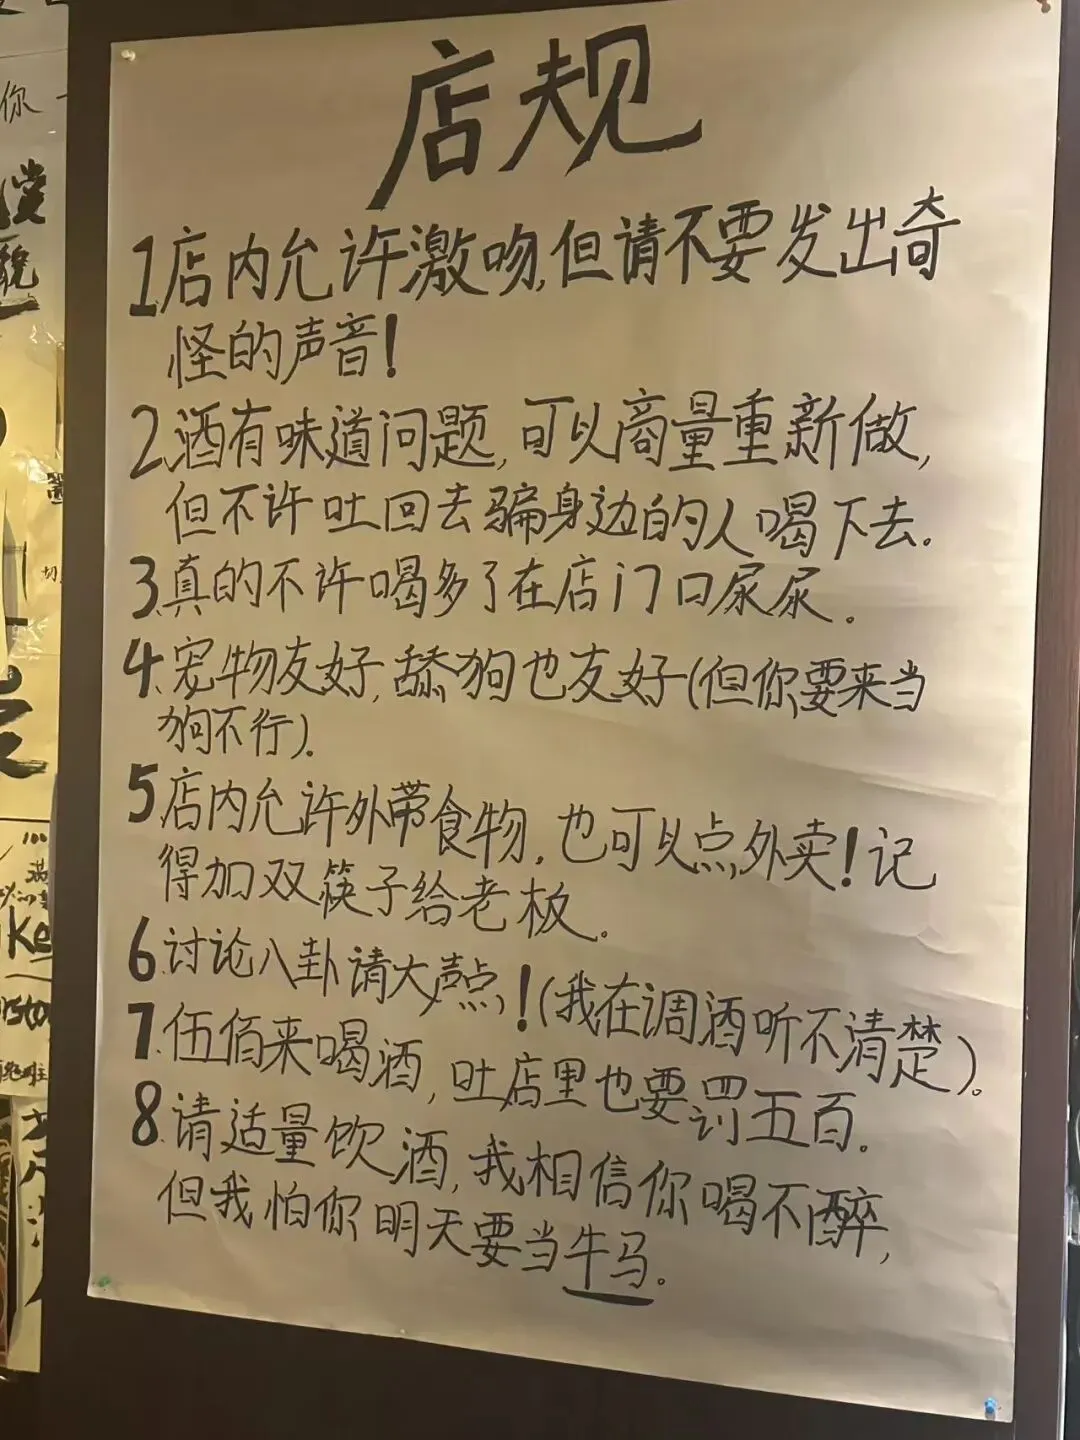 店规
1.店内允许激吻,但请不要发出奇
怪的声音!
2.酒有味道问题,可以商量重新做,
但不许吐回去骗身边的人喝下去.
3.真的不许喝多了在店门口尿尿.
4.宠物友好,舔狗也友好(但你要来当
狗不行).
5.店内允许外带食物,也可以点外卖!记
得加双筷子给老板.
6.讨论八卦请大声点!(我在调酒听不清楚).
7.伍佰来喝酒,吐店里也要罚五百.
8.请适量饮酒,我相信你喝不醉,
但我怕你明天要当牛马.
你